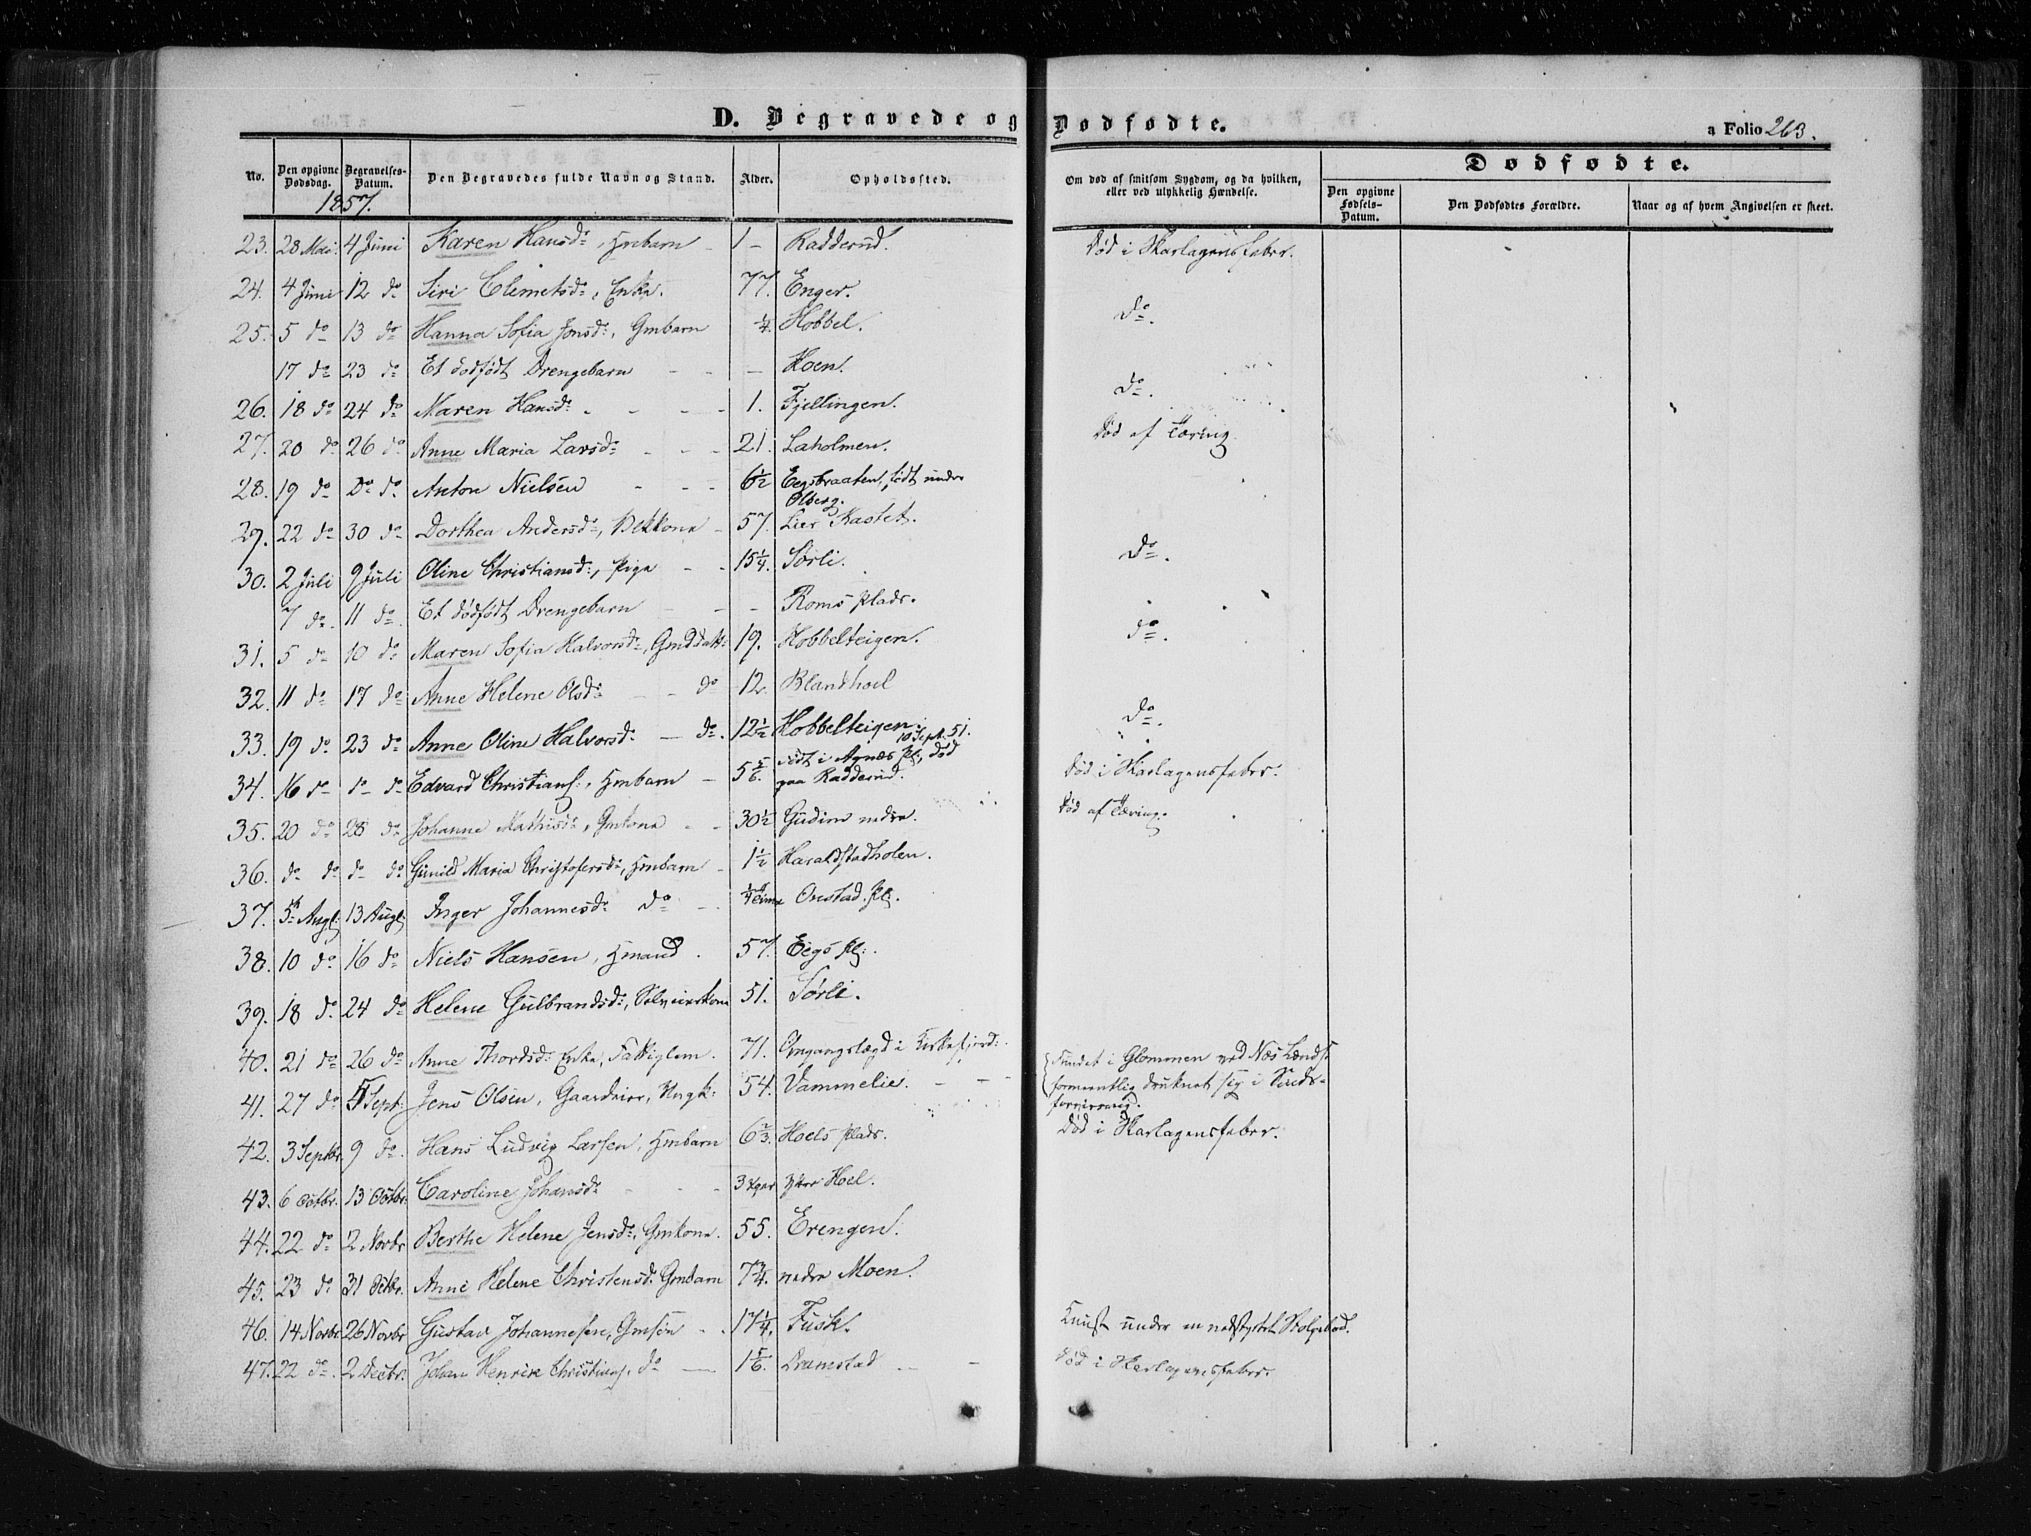 D. Begravede og Dødfødte.
a Folio 263.
No. Den opgivne Dødsdag. Begravelses-Datum. Den Begravedes fulde Navn og Stand. Alder. Opholdssted. Om død af smitsom Sygdom, og da hvilken, eller ved ulykkelig Hændelse. Dødfødte.
Den opgivne Fødsels-Datum. Den Dødfødtes Forældre. Naar og af hvem Angivelsen er skeet.
1857.
23. 28 Mai 4 Juni Karen Hansd:, Hmbarn 1 - Radderud. Død i Skarlagensfeber.
24. 4 Juni 12 do Siri Clemetsd:, Enke. 77. Enger.
25. 5 do 13 do Hanna Sofia Jonsd:, Gmbarn ¼. Hobbel. do.
17 do 23 do Et dødfødt Drengebarn - - - Hoen.
26. 18 do 24 do Maren Hansd: - - - 1. Fjellingen. do.
27. 20 do 26 do Anne Maria Larsd: - - - 21. Laholmen. Død af Tæring.
28. 19 do Do do Anton Nielsen - - - 6½ Eegsbraaten, født under
Olberg.
29. 22 do 30 do Dorthea Andersd:, - 57. Lier Kastet.
30. 2 Juli 9 Juli Oline Christiansd:, Pige - - 15¼. Sørli. do.
7 do. 11 do. Et dødfødt Drengebarn - - - Roms Plads.
31. 5 do 10 do Maren Sofia Halvorsd:, Gmdsdatt: 19. Hobbelteigen. do.
32. 11 do 17 do Anne Helene Olsd: - - do 12. Blandhoel
33. 19 do 23 do Anne Oline Halvorsd: - do. 12½ Hobbelteigen. do.
10 Sept. 51.
34. 16 do do do Edvard Christians:, Hmbarn - 5 5/6. født i Agnæs Pl:, død
paa Radderud. Død i Skarlagensfeber.
35. 20 do 28 do Johanne Mathisd:, Gmkona - - 30½ Gudim nedre. Død af Tæring.
36. do do do do Gunild Maria Christofersd:, Hmbarn - 1½ Haraldstadholen.
37. 5 Augl: 13 Augl: Inger Johannesd: do - - ¼ Onstad. Pl:.
38. 10 do 16 do Niels Hansen, Hmand. 57. Eegs Pl:.
39. 18 do 24 do Helene Gulbrandsd:, Selveierkona 51. Sørli.
40. 21 do 26 do Anne Thordsd: Enke, Fattiglem. 71. Omgangslægd i Kirkefjerd:.
Fundet i Glommen ved Næs Lændse
41. 27 do 5 Sept: Jens Olsen, Gaardeier, Ungk: 54. Vammelie. - - formeentlig druknet sig i Sinds-
forvirring.
42. 3 Septbr. 9 do. Hans Ludvig Larsen, Hmbarn 6⅔. Hoels Plads. Død i Skarlagensfeber.
43. 6 Octbr. 13 Octbr. Caroline Johansd: - - - 3 Uger Ytre Hoel.
44. 22 do 2 Novbr Berthe Helene Jensd:, Gmkona. 55. Erengen.
45. 23 do 31 Octbr. Anne Helene Christensd: Gmbarn 7¾. nedre Moen.
46. 14 Novbr. 26 Novbr Gustav Johannesen, Gmsøn - - 17¼. Fusk. Knust under en nedstyrtet Stolpebod.
47. 22 do. 2 Decbr. Johan Henrik Christians:, do - 1 5/6. Dramstad - - Død i Skarlagensfeber.